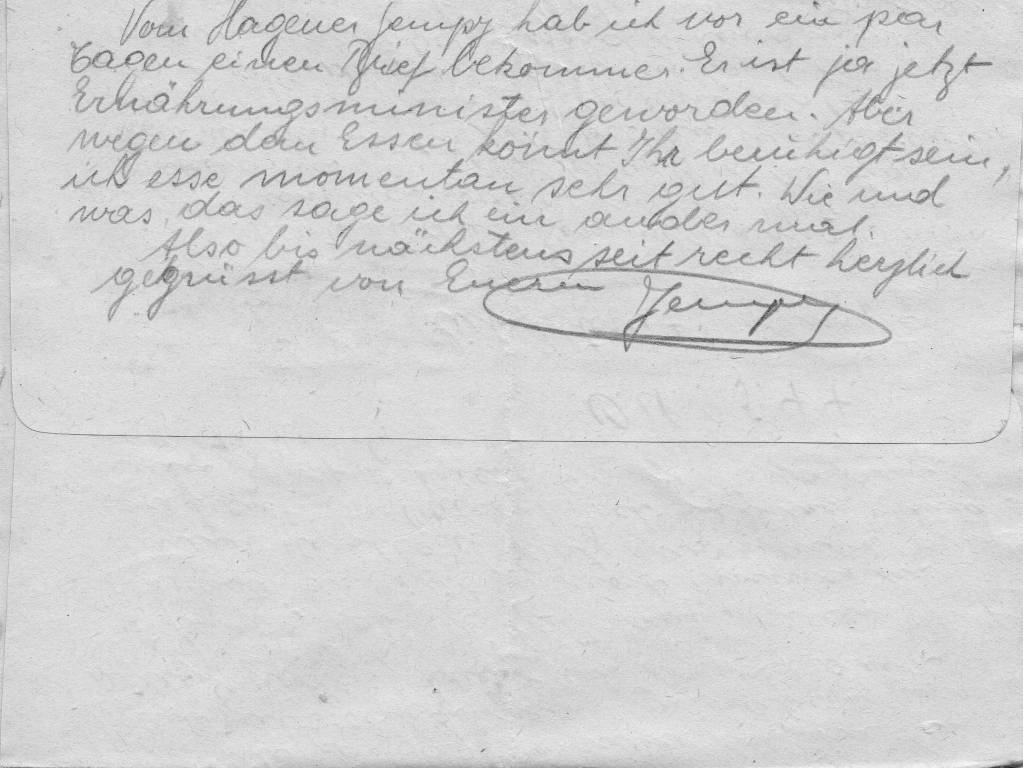 Vom Hagener Jempy hab ich vor ein paar
Tagen einen Brief bekommen. Er ist ja jetzt
Ernährungsminister geworden. Aber
wegen dem Essen könnt Ihr beruhigt sein,
ich esse momentan sehr gut. Wie und
was, das sage ich ein ander mal.
Also bis nächstens seit recht herzlich
gegrüsst von Euerm Jempy